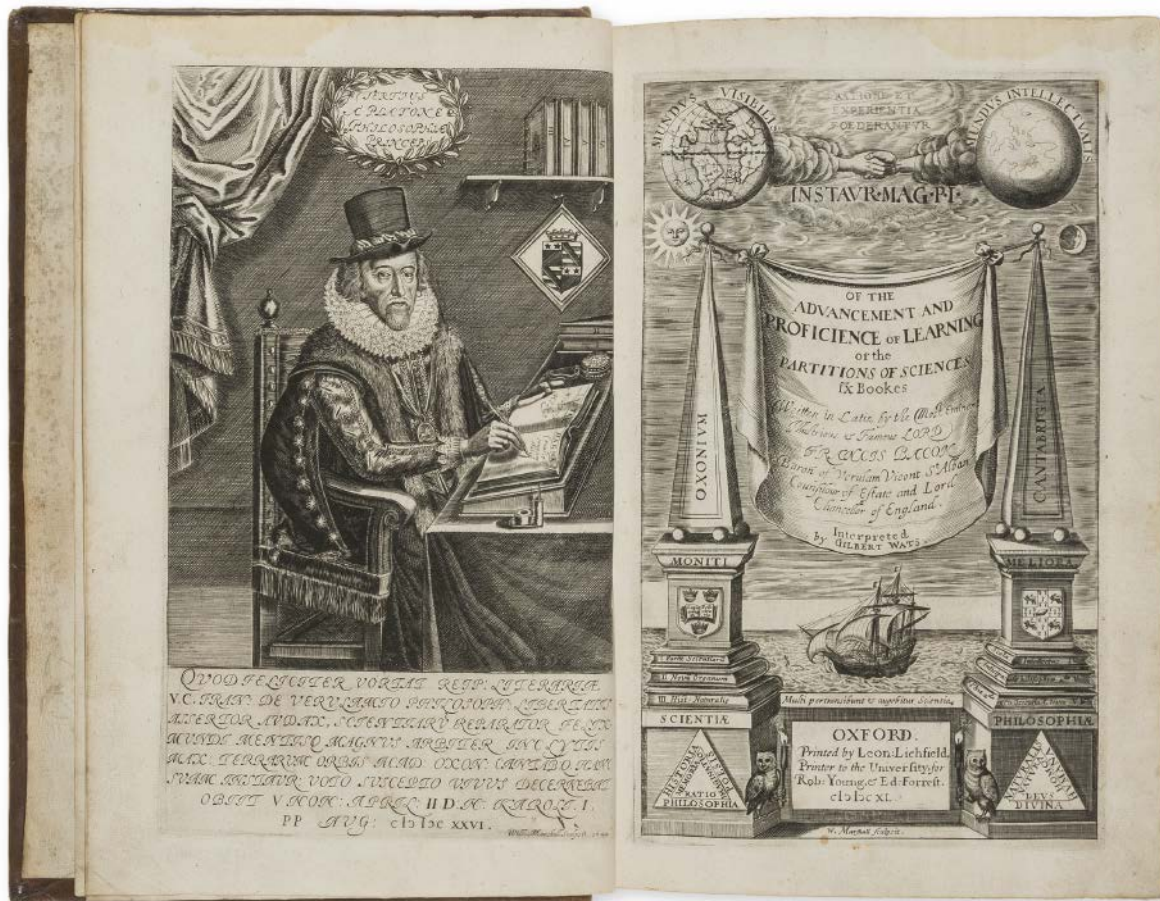 TERTIUS
A PLATONE
PHILOSOPHIÆ
PRINCEPS
QVOD FELICITER VORTAT REIP: LITERARIÆ
V.C. FRAN: DE VERULAMIO PHILOSOPH: LIBERTATIS
ASSERTOR AVDAX, SCIENTIARV REPARATOR FELIX
MUNDI MENTISQ MAGNVS ARBITER INCLYTIS
MAX: TERRARVM ORBIS ACAD: OXON: CANTABQ HANC
SVAM INSTAVR: VOTO SVSCEPTO VIVVS DECERNEBAT
OBIIT V NON: APRIL: II D: N: KAROLI: I
PP AVG: cIɔ Iɔc XXVI.
MUNDUS VISIBILIS
RATIONE ET
EXPERIENTIA
FOEDERANTVR
MUNDUS INTELLECTVALIS
INSTAVR·MAG·P·I·
OF THE
ADVANCEMENT AND
PROFICIENCE OF LEARNING
or the
PARTITIONS OF SCIENCES
IX Bookes
Written in Latin by the Most Eminent
Illustrious & Famous LORD
FRANCIS BACON
Baron of Verulam Vicont St Alban
Counsilour of Estate and Lord
Chancellor of England.
Interpreted
by GILBERT WATS.
OXONIUM
CANTABRIGIA
MONITI
MELIORA
II Nov: Organum
III Hist: Naturalis
Multi pertransibunt & augebitur Scientia.
SCIENTIÆ
PHILOSOPHIÆ
HISTORIA
POESIS
RATIO
PHILOSOPHIA
DEUS
DIVINA
OXFORD.
Printed by Leon: Lichfield,
Printer to the University, for
Rob: Young, & Ed: Forrest.
cIɔ Iɔc XL.
W. Marshall sculpsit.